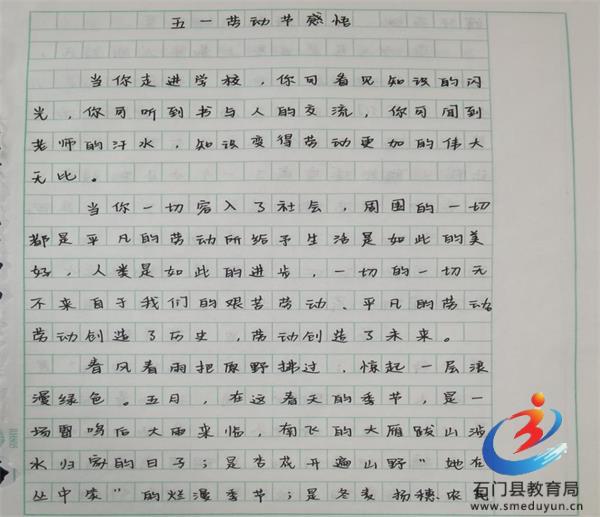 五一劳动节感悟
当你走进学校，你可看见知识的闪
光，你可听到书与人的交流，你可闻到
老师的汗水，知识变得劳动更加的伟大
无比。
当你一切容入了社会，周围的一切
都是平凡的劳动所给予生活是如此的美
好，人类是如此的进步，一切的一切无
不来自于我们的艰苦劳动、平凡的劳动。
劳动创造了历史，劳动创造了未来。
春风春雨把原野拂过，惊起一层浪
漫绿色。五月，在这春天的季节，是一
场雷鸣后大雨来临，南飞的大雁跋山涉
水归家的日子；是杏花开遍山野“她在
丛中笑”的烂漫季节；是冬麦扬穗，农民
石门县教育局
www.smeduyun.cn